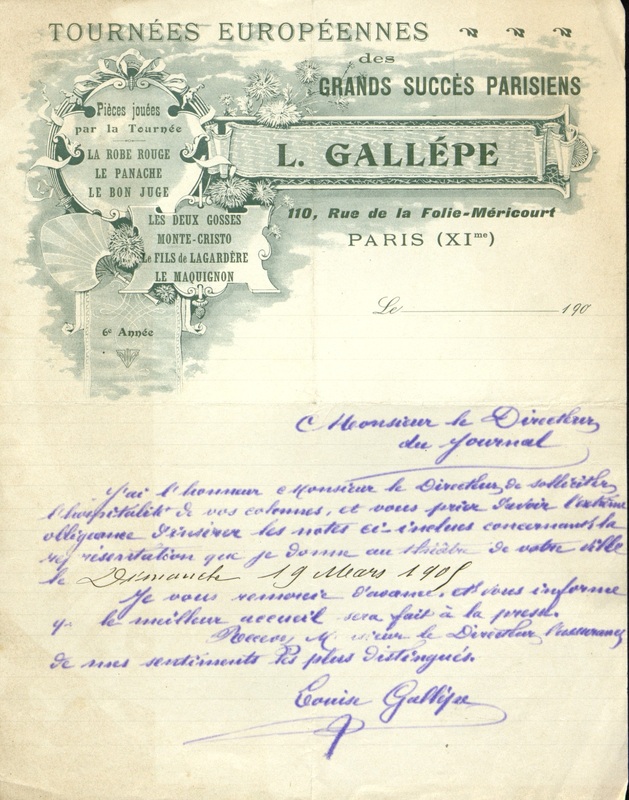 TOURNÉES EUROPÉENNES
des
GRANDS SUCCÈS PARISIENS
L. GALLÉPE
110, Rue de la Folie-Méricourt
PARIS (XIme)
Pièces jouées
par la Tournée
LA ROBE ROUGE
LE PANACHE
LE BON JUGE
LES DEUX GOSSES
MONTE-CRISTO
Le FILS de LAGARDÈRE
LE MAQUIGNON
6e Année
Le 190
Monsieur le Directeur
du Journal
J'ai l'honneur Monsieur le Directeur, de solliciter
l'hospitalité de vos colonnes, et vous prier d'avoir l'extrême
obligeance d'insérer les notes ci-inclues concernant la
représentation que je donne au théâtre de votre ville
le Dimanche 19 Mars 1905
Je vous remercie d'avance, et vous informe
que le meilleur accueil sera fait à la presse.
Recevez Monsieur le Directeur l'assurance
de mes sentiments les plus distingués.
Louise Gallépe